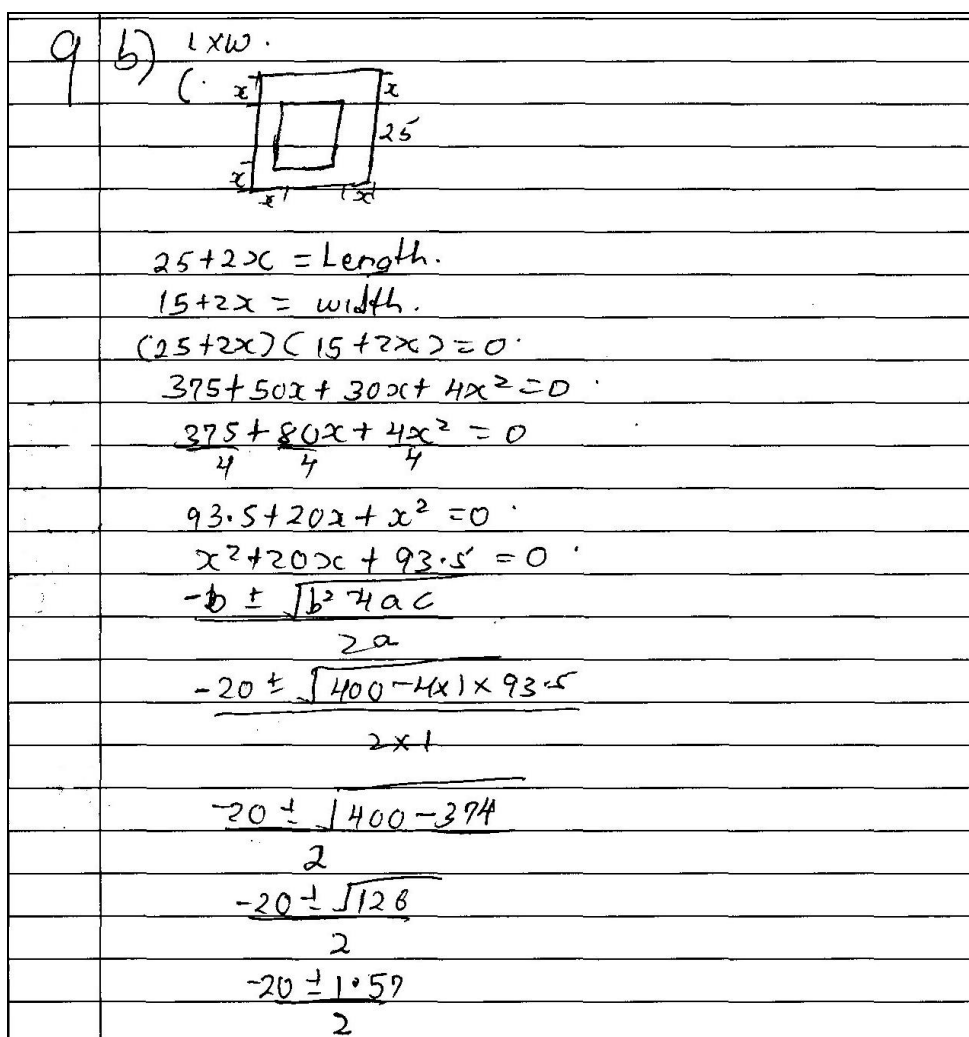 9 b) L x W .
( .
x x
25
x
x x
25 + 2x = Length.
15 + 2x = width.
(25 + 2x)(15 + 2x) = 0.
375 + 50x + 30x + 4x² = 0.
375/4 + 80x/4 + 4x²/4 = 0
93.5 + 20x + x² = 0.
x² + 20x + 93.5 = 0.
(-b ± √(b² - 4ac)) / 2a
(-20 ± √(400 - 4x1 x 93.5)) / 2x1
(-20 ± √(400 - 374)) / 2
(-20 ± √126) / 2
(-20 ± 1.57) / 2